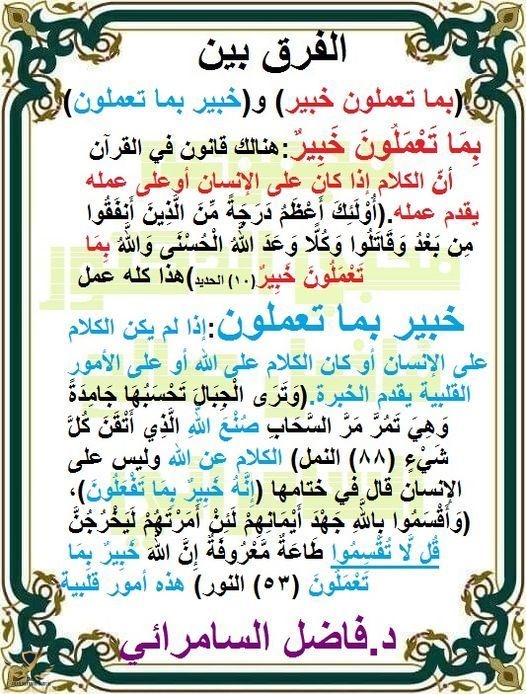 الفرق بين
(بما تعملون خبير) و(خبير بما تعملون)
بِمَا تَعْمَلُونَ خَبِيرٌ:هنالك قانون في القرآن
أنّ الكلام إذا كان على الإنسان أوعلى عمله
يقدم عمله.(أُوْلَئِكَ أَعْظَمُ دَرَجَةً مِّنَ الَّذِينَ أَنْفَقُوا
مِن بَعْدُ وَقَاتَلُوا وَكُلًّا وَعَدَ اللَّهُ الْحُسْنَى وَاللَّهُ بِمَا
تَعْمَلُونَ خَبِيرٌ(١٠) الحديد)هذا كله عمل
خبير بما تعملون:إذا لم يكن الكلام
على الإنسان أو كان الكلام على الله أو على الأمور
القلبية يقدم الخبرة.(وَتَرَى الْجِبَالَ تَحْسَبُهَا جَامِدَةً
وَهِيَ تَمُرُّ مَرَّ السَّحَابِ صُنْعَ اللَّهِ الَّذِي أَتْقَنَ كُلَّ
شَيْءٍ (٨٨) النمل) الكلام عن الله وليس على
الإنسان قال في ختامها (إِنَّهُ خَبِيرٌ بِمَا تَفْعَلُونَ)،
(وَأَقْسَمُوا بِاللَّهِ جَهْدَ أَيْمَانِهِمْ لَئِنْ أَمَرْتَهُمْ لَيَخْرُجُنَّ
قُل لَّا تُقْسِمُوا طَاعَةٌ مَّعْرُوفَةٌ إِنَّ اللَّهَ خَبِيرٌ بِمَا
تَعْمَلُونَ (٥٣) النور) هذه أمور قلبية
د.فاضل السامرائي